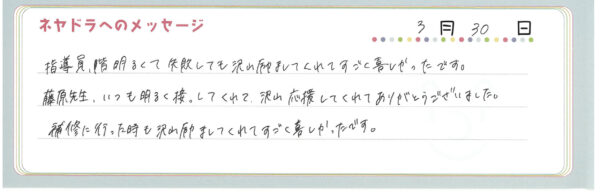 ネヤドラへのメッセージ
3月30日
指導員、皆明るくて失敗しても沢山励ましてくれてすごく喜しかったです。
藤原先生、いつも明るく接してくれて、沢山応援してくれてありがとうございました。
補修に行った時も沢山励ましてくれてすごく喜しかったです。